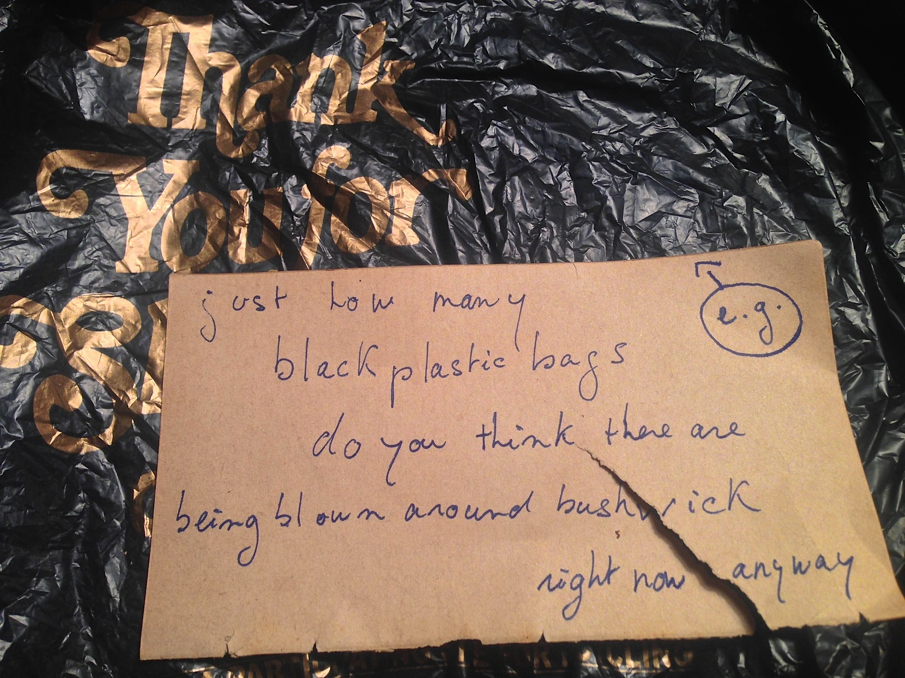 Thank
You for
just how many
e.g.
black plastic bags
do you think there are
being blown around bushwick
right now anyway